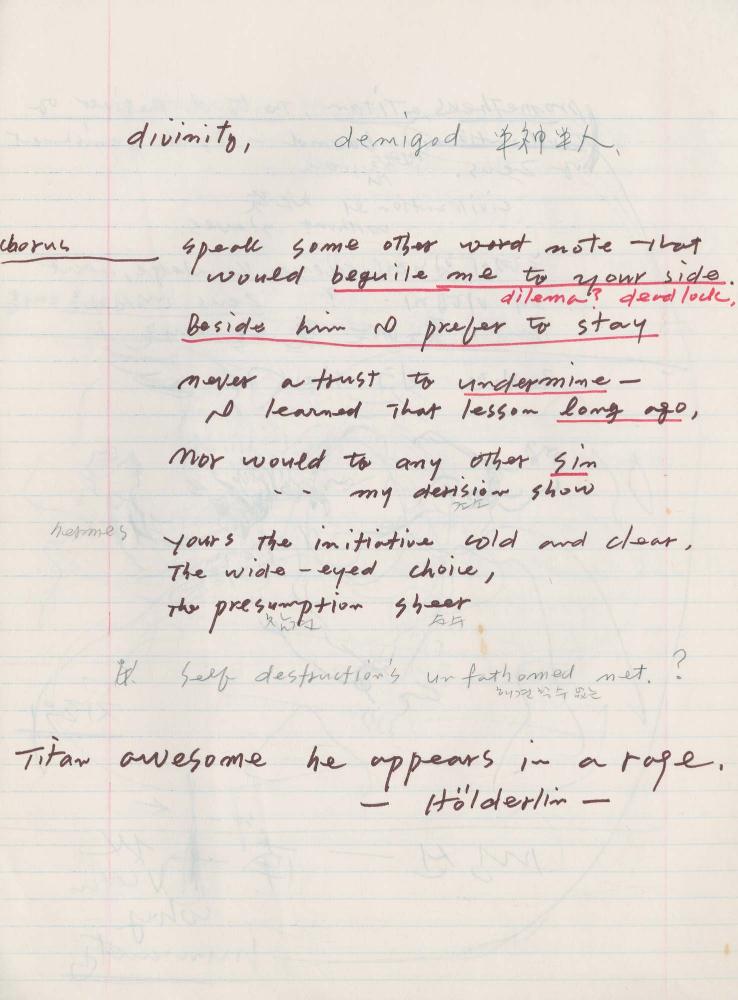 divinity, demigod 半神半人.
chorus speak some other word note that
would beguile me to your side.
dilema? deadlock,
Beside him I prefer to stay
never a trust to undermine —
I learned that lesson long ago,
Nor would to any other sin
.. my decision show
hermes yours the initiative cold and clear,
The wide-eyed choice,
the presumption sheer
순수
self destruction's unfathomed net. ?
해결할 수 없는
Titan awesome he appears in a rage.
— Hölderlin —